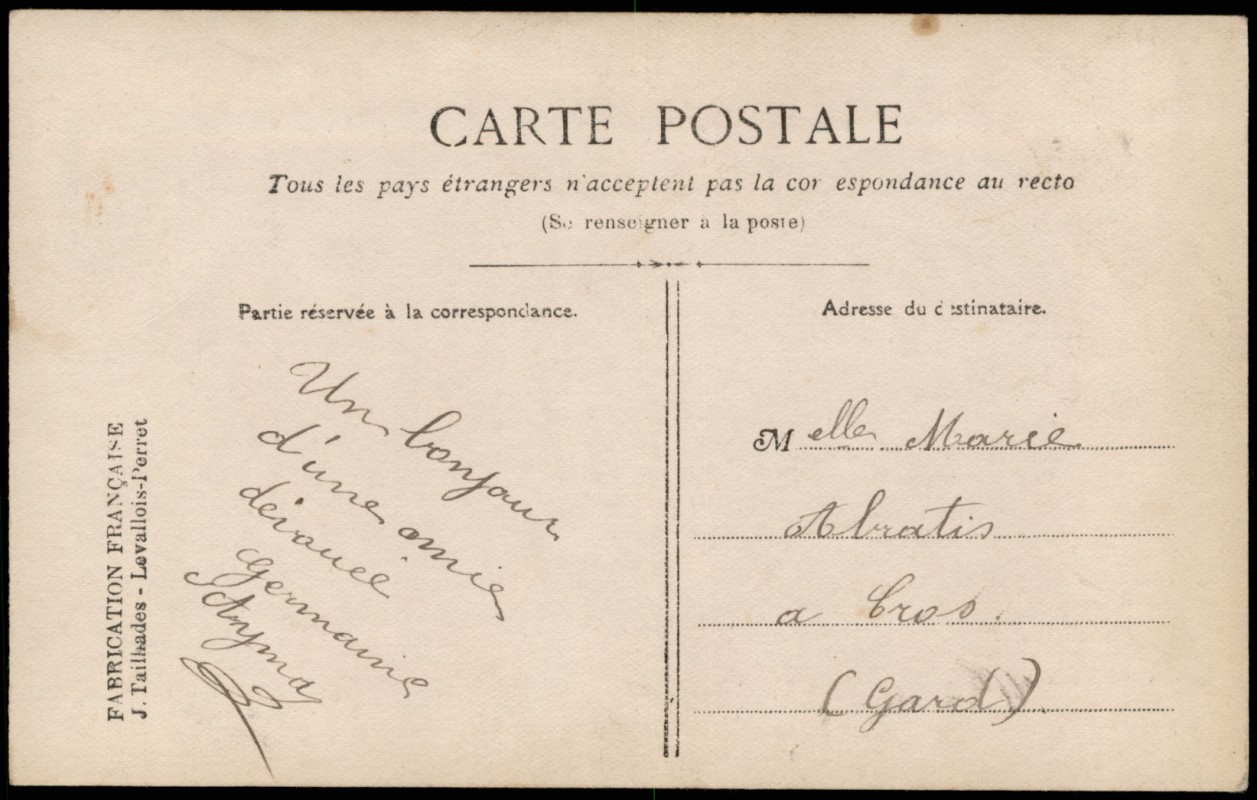 CARTE POSTALE
Tous les pays étrangers n'acceptent pas la correspondance au recto
(Se renseigner à la poste)
Partie réservée à la correspondance.
Un bonjour
d'une amie
dévouée
Germaine
FABRICATION FRANÇAISE
J. Tailhades - Levallois-Perret
Adresse du destinataire.
Melle Marie
Abratis
a Cros.
(Gard)